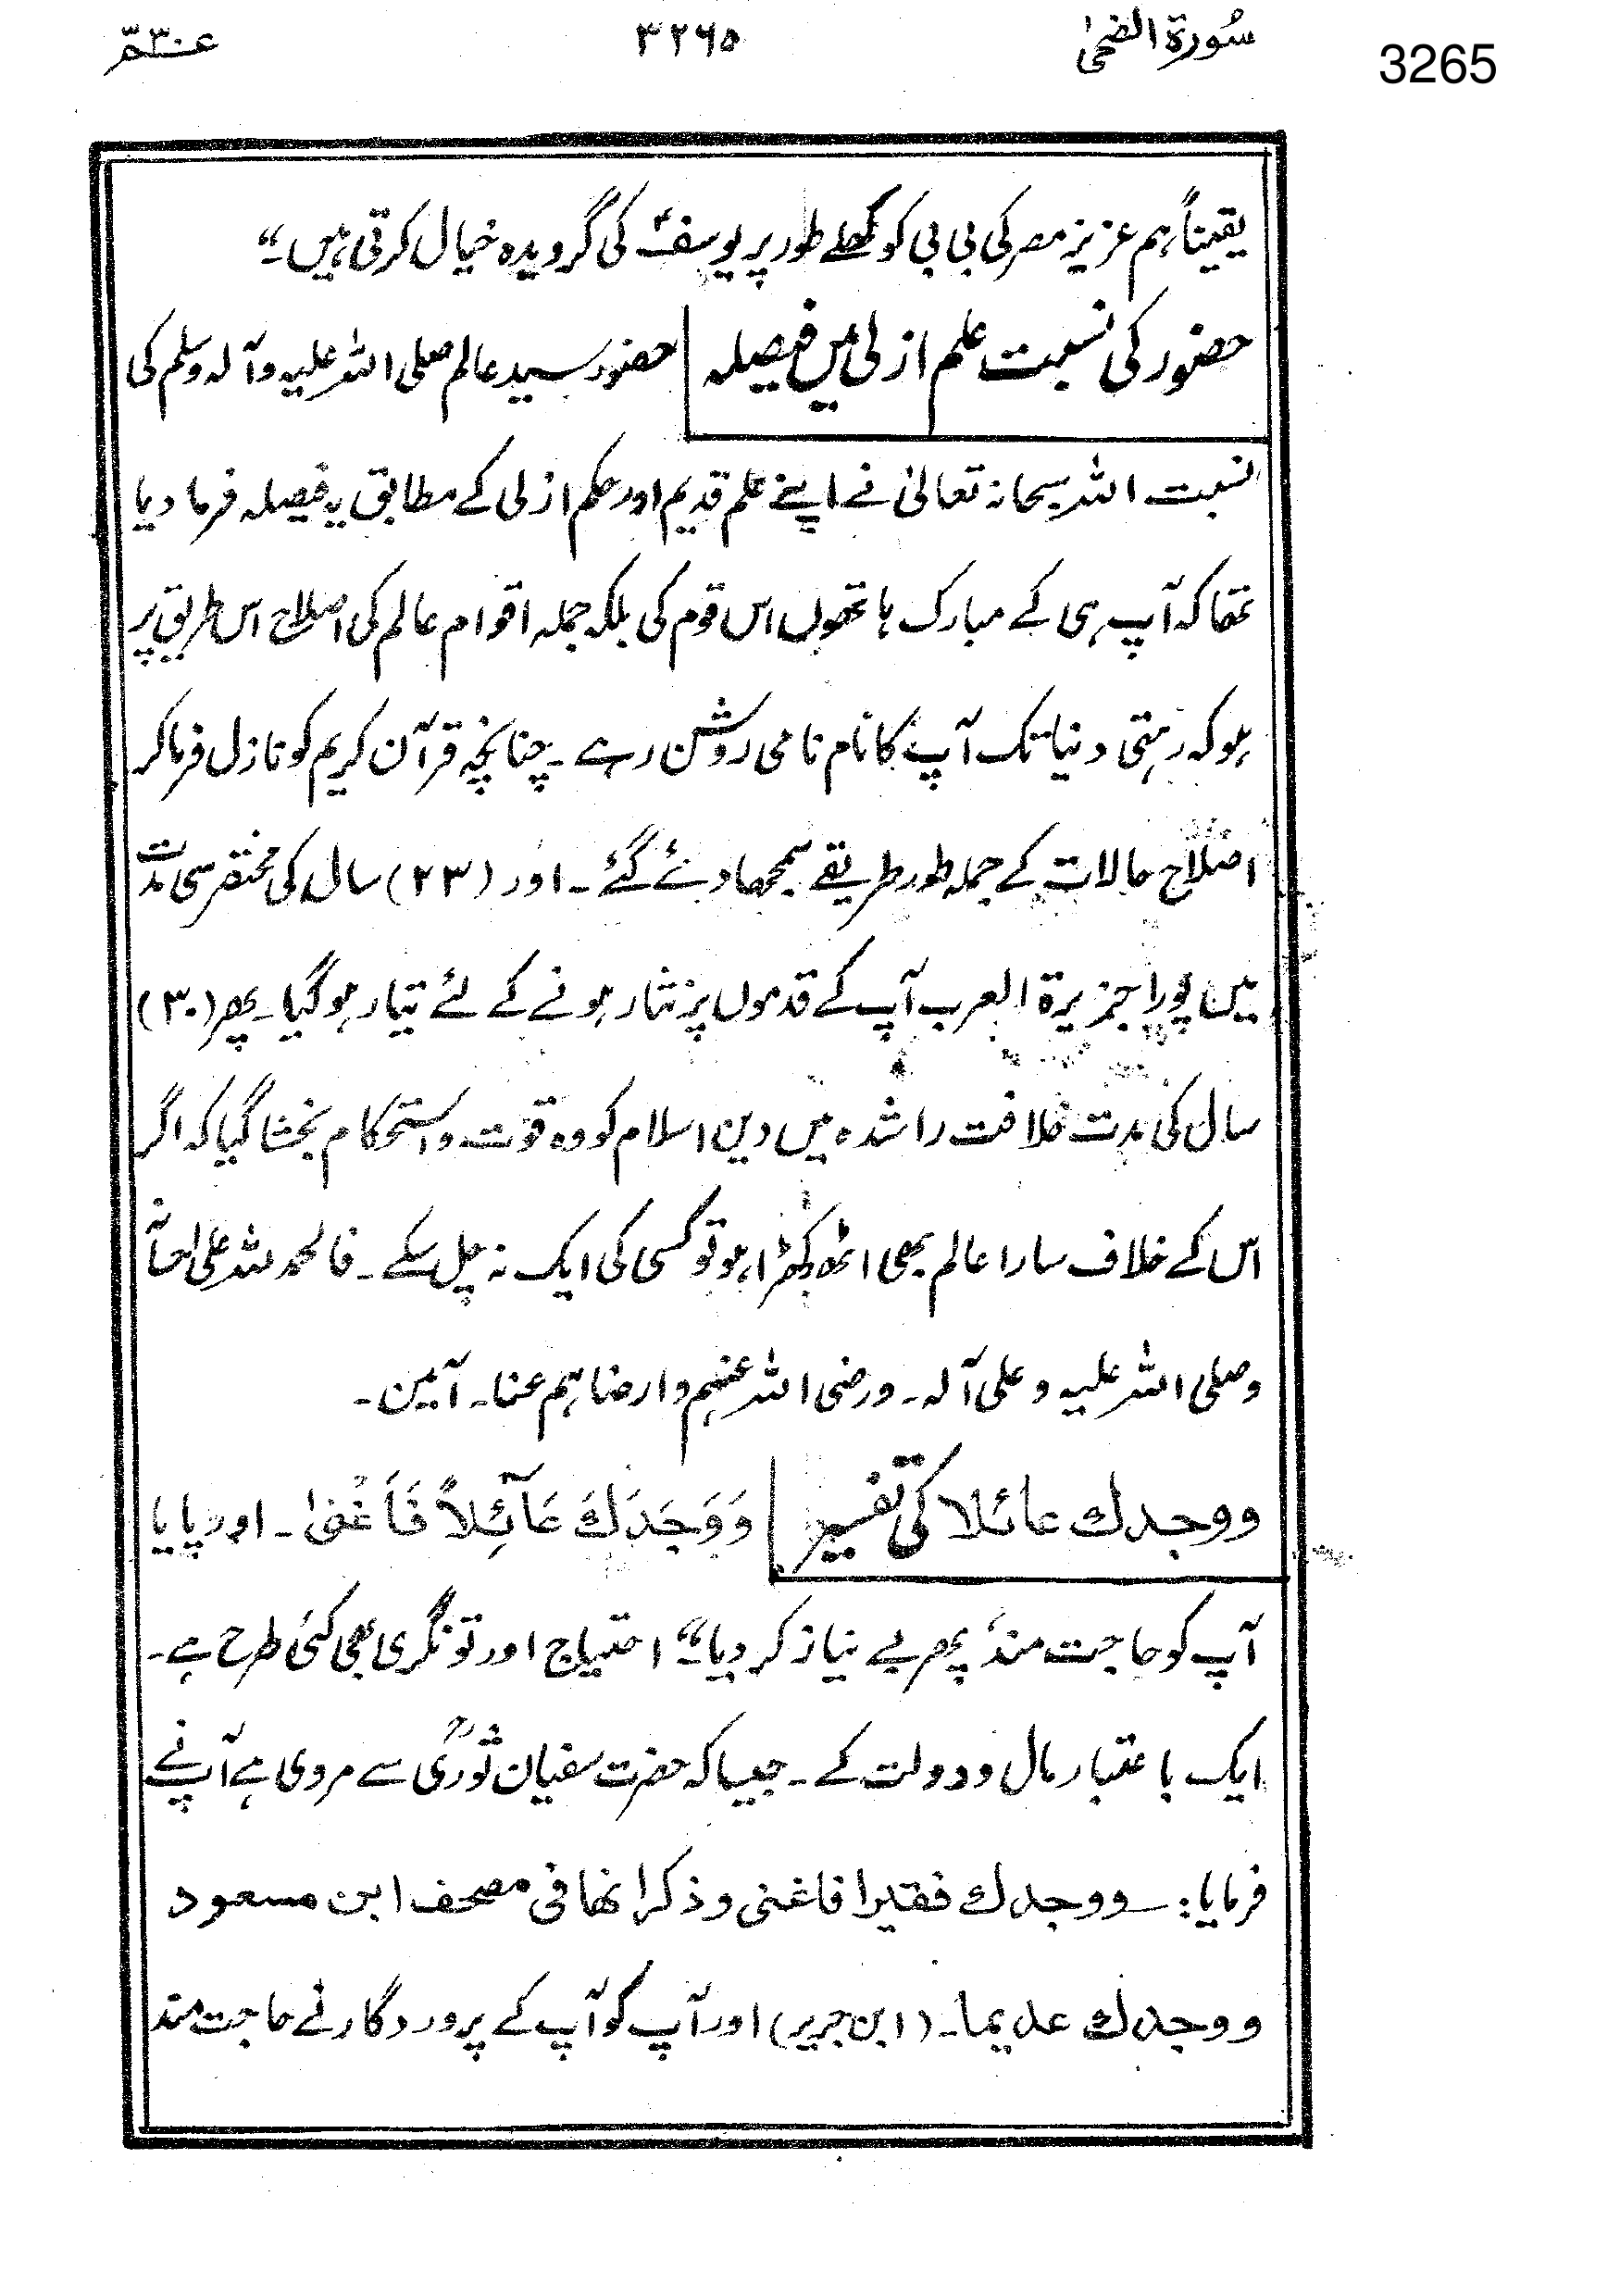 سُورۃ الضحیٰ ۳۲۶۵ عـــمّ ۳۰
3265
یقیناً ہم عزیز مصر کی بی بی کو کھلے طور پر یوسفؑ کی گرویدہ خیال کرتی ہیں۔“
حضور کی نسبت علم ازلی میں فیصلہ حضور سید عالم صلی اللہ علیہ وآلہ وسلم کی
نسبت اللہ سبحانہ تعالیٰ نے اپنے علم قدیم اور حکم ازلی کے مطابق یہ فیصلہ فرما دیا
تھا کہ آپ ہی کے مبارک ہاتھوں اس قوم کی بلکہ جملہ اقوام عالم کی اصلاح اس طریق پر
ہو کہ رہتی دنیا تک آپ کا نام نامی روشن رہے۔ چنانچہ قرآن کریم کو نازل فرما کر
اصلاح حالات کے جملہ طور طریقے سمجھا دئے گئے۔ اور (۲۳) سال کی مختصر سی مدت
میں پورا جزیرۃ العرب آپ کے قدموں پر نثار ہونے کے لئے تیار ہو گیا۔ پھر (۳۰)
سال کی مدت خلافت راشدہ میں دین اسلام کو وہ قوّت و استحکام بخشا گیا کہ اگر
اس کے خلاف سارا عالم بھی اٹھ کھڑا ہو تو کسی کی ایک نہ چل سکے۔ فالحمد للہ علی احسانہٖ
وصلی اللہ علیہ وعلی آلہ۔ ورضی اللہ عنہم وارضاہم عنا۔ آمین۔
ووجدك عائلا کی تفسیر وَوَجَدَكَ عَآئِلاً فَأَغْنیٰ۔ اور پایا
آپ کو حاجت مند، پھر بے نیاز کر دیا۔“ احتیاج اور تونگری بھی کئی طرح ہے۔
ایک باعتبار مال و دولت کے۔ جیسا کہ حضرت سفیان ثوریؒ سے مروی ہے آپ نے
فرمایا:۔ ووجدك فقيرا فاغنى وذكر انها في مصحف ابن مسعود
ووجدك عديما۔ (ابن جریر) اور آپ کو آپ کے پروردگار نے حاجت مند